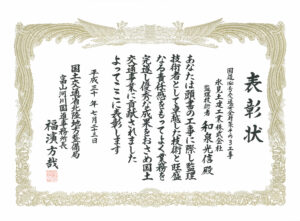 表彰状
国道470号
氷見土建工業株式会社
監理技術者 和泉光信殿
あなたは頭書の工事に際し監理
技術者として卓越した技術と旺盛
なる責任感をもってよく業務を
完遂し優秀な成果をおさめ国土
交通事業に貢献されました
よってここに表彰します
平成三十年七月二十三日
国土交通省北陸地方整備局
富山河川国道事務所長
福濱方哉